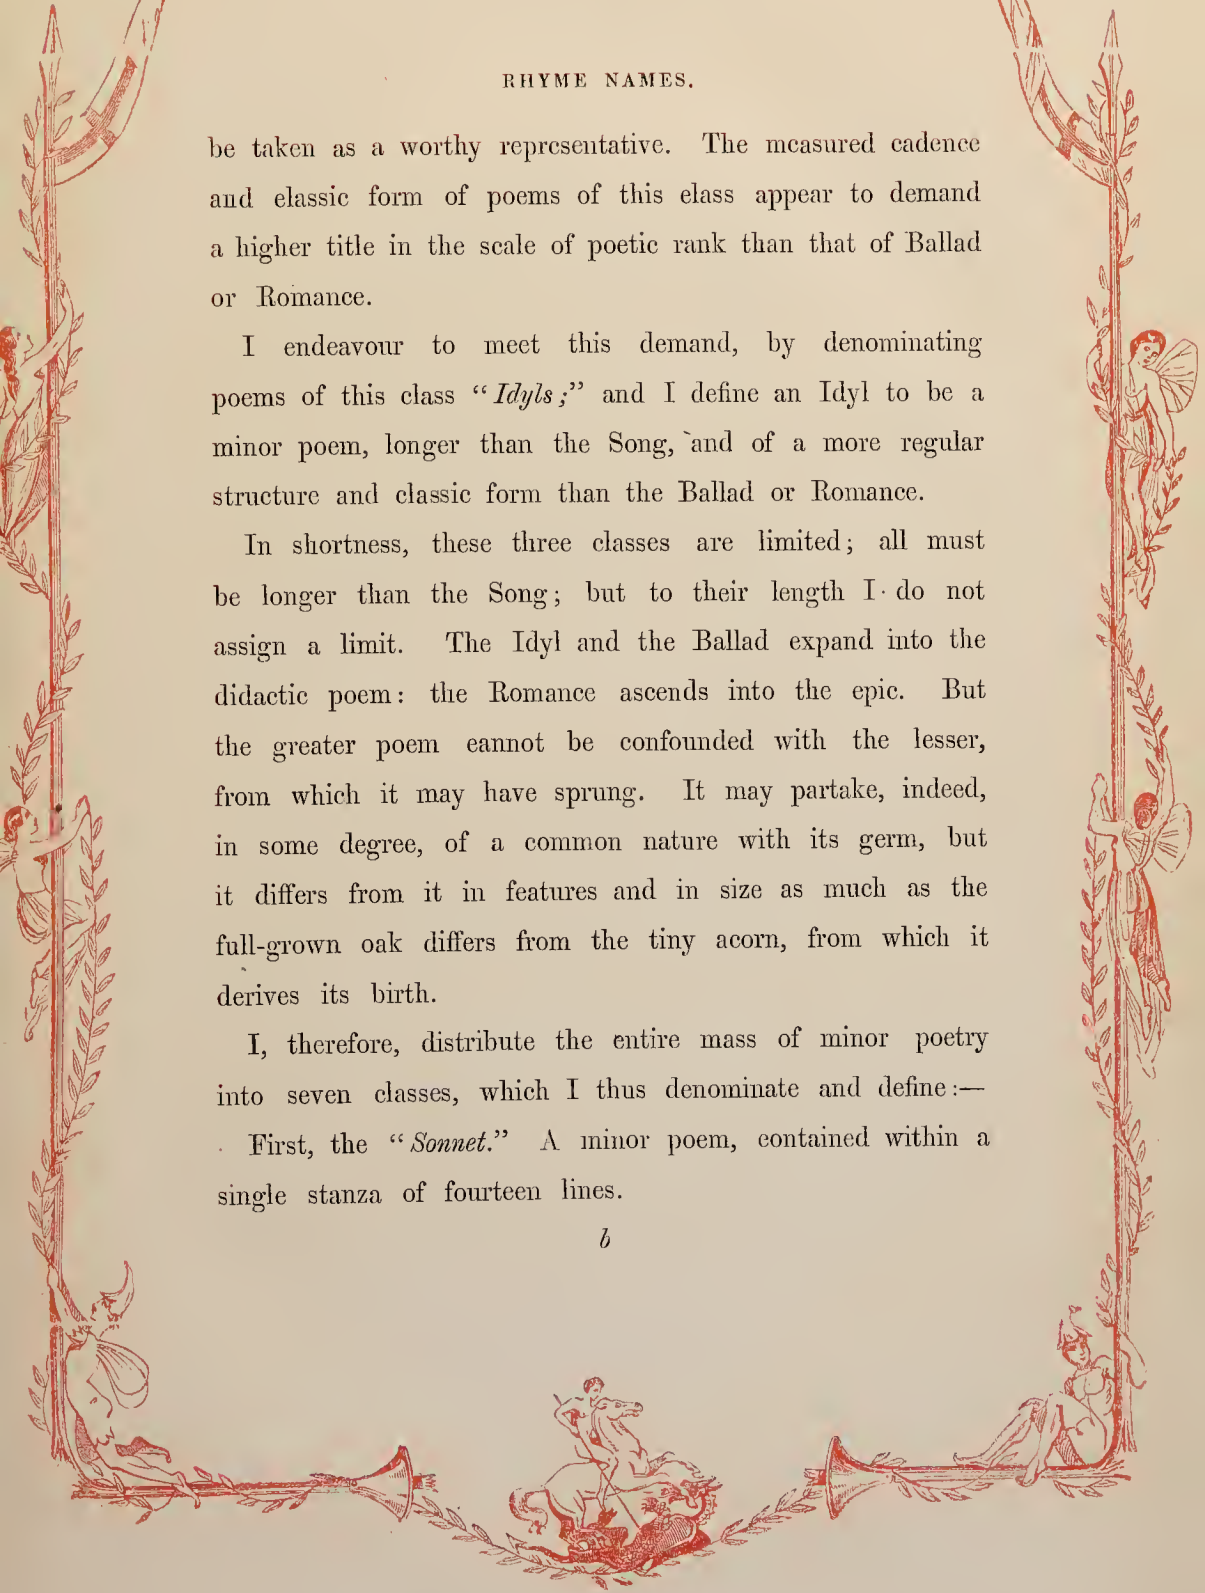 RHYME NAMES.
be taken as a worthy representative. The measured cadence
and classic form of poems of this class appear to demand
a higher title in the scale of poetic rank than that of Ballad
or Romance.
I endeavour to meet this demand, by denominating
poems of this class “Idyls;” and I define an Idyl to be a
minor poem, longer than the Song, and of a more regular
structure and classic form than the Ballad or Romance.
In shortness, these three classes are limited; all must
be longer than the Song; but to their length I do not
assign a limit. The Idyl and the Ballad expand into the
didactic poem: the Romance ascends into the epic. But
the greater poem cannot be confounded with the lesser,
from which it may have sprung. It may partake, indeed,
in some degree, of a common nature with its germ, but
it differs from it in features and in size as much as the
full-grown oak differs from the tiny acorn, from which it
derives its birth.
I, therefore, distribute the entire mass of minor poetry
into seven classes, which I thus denominate and define:—
First, the “Sonnet.” A minor poem, contained within a
single stanza of fourteen lines.
b